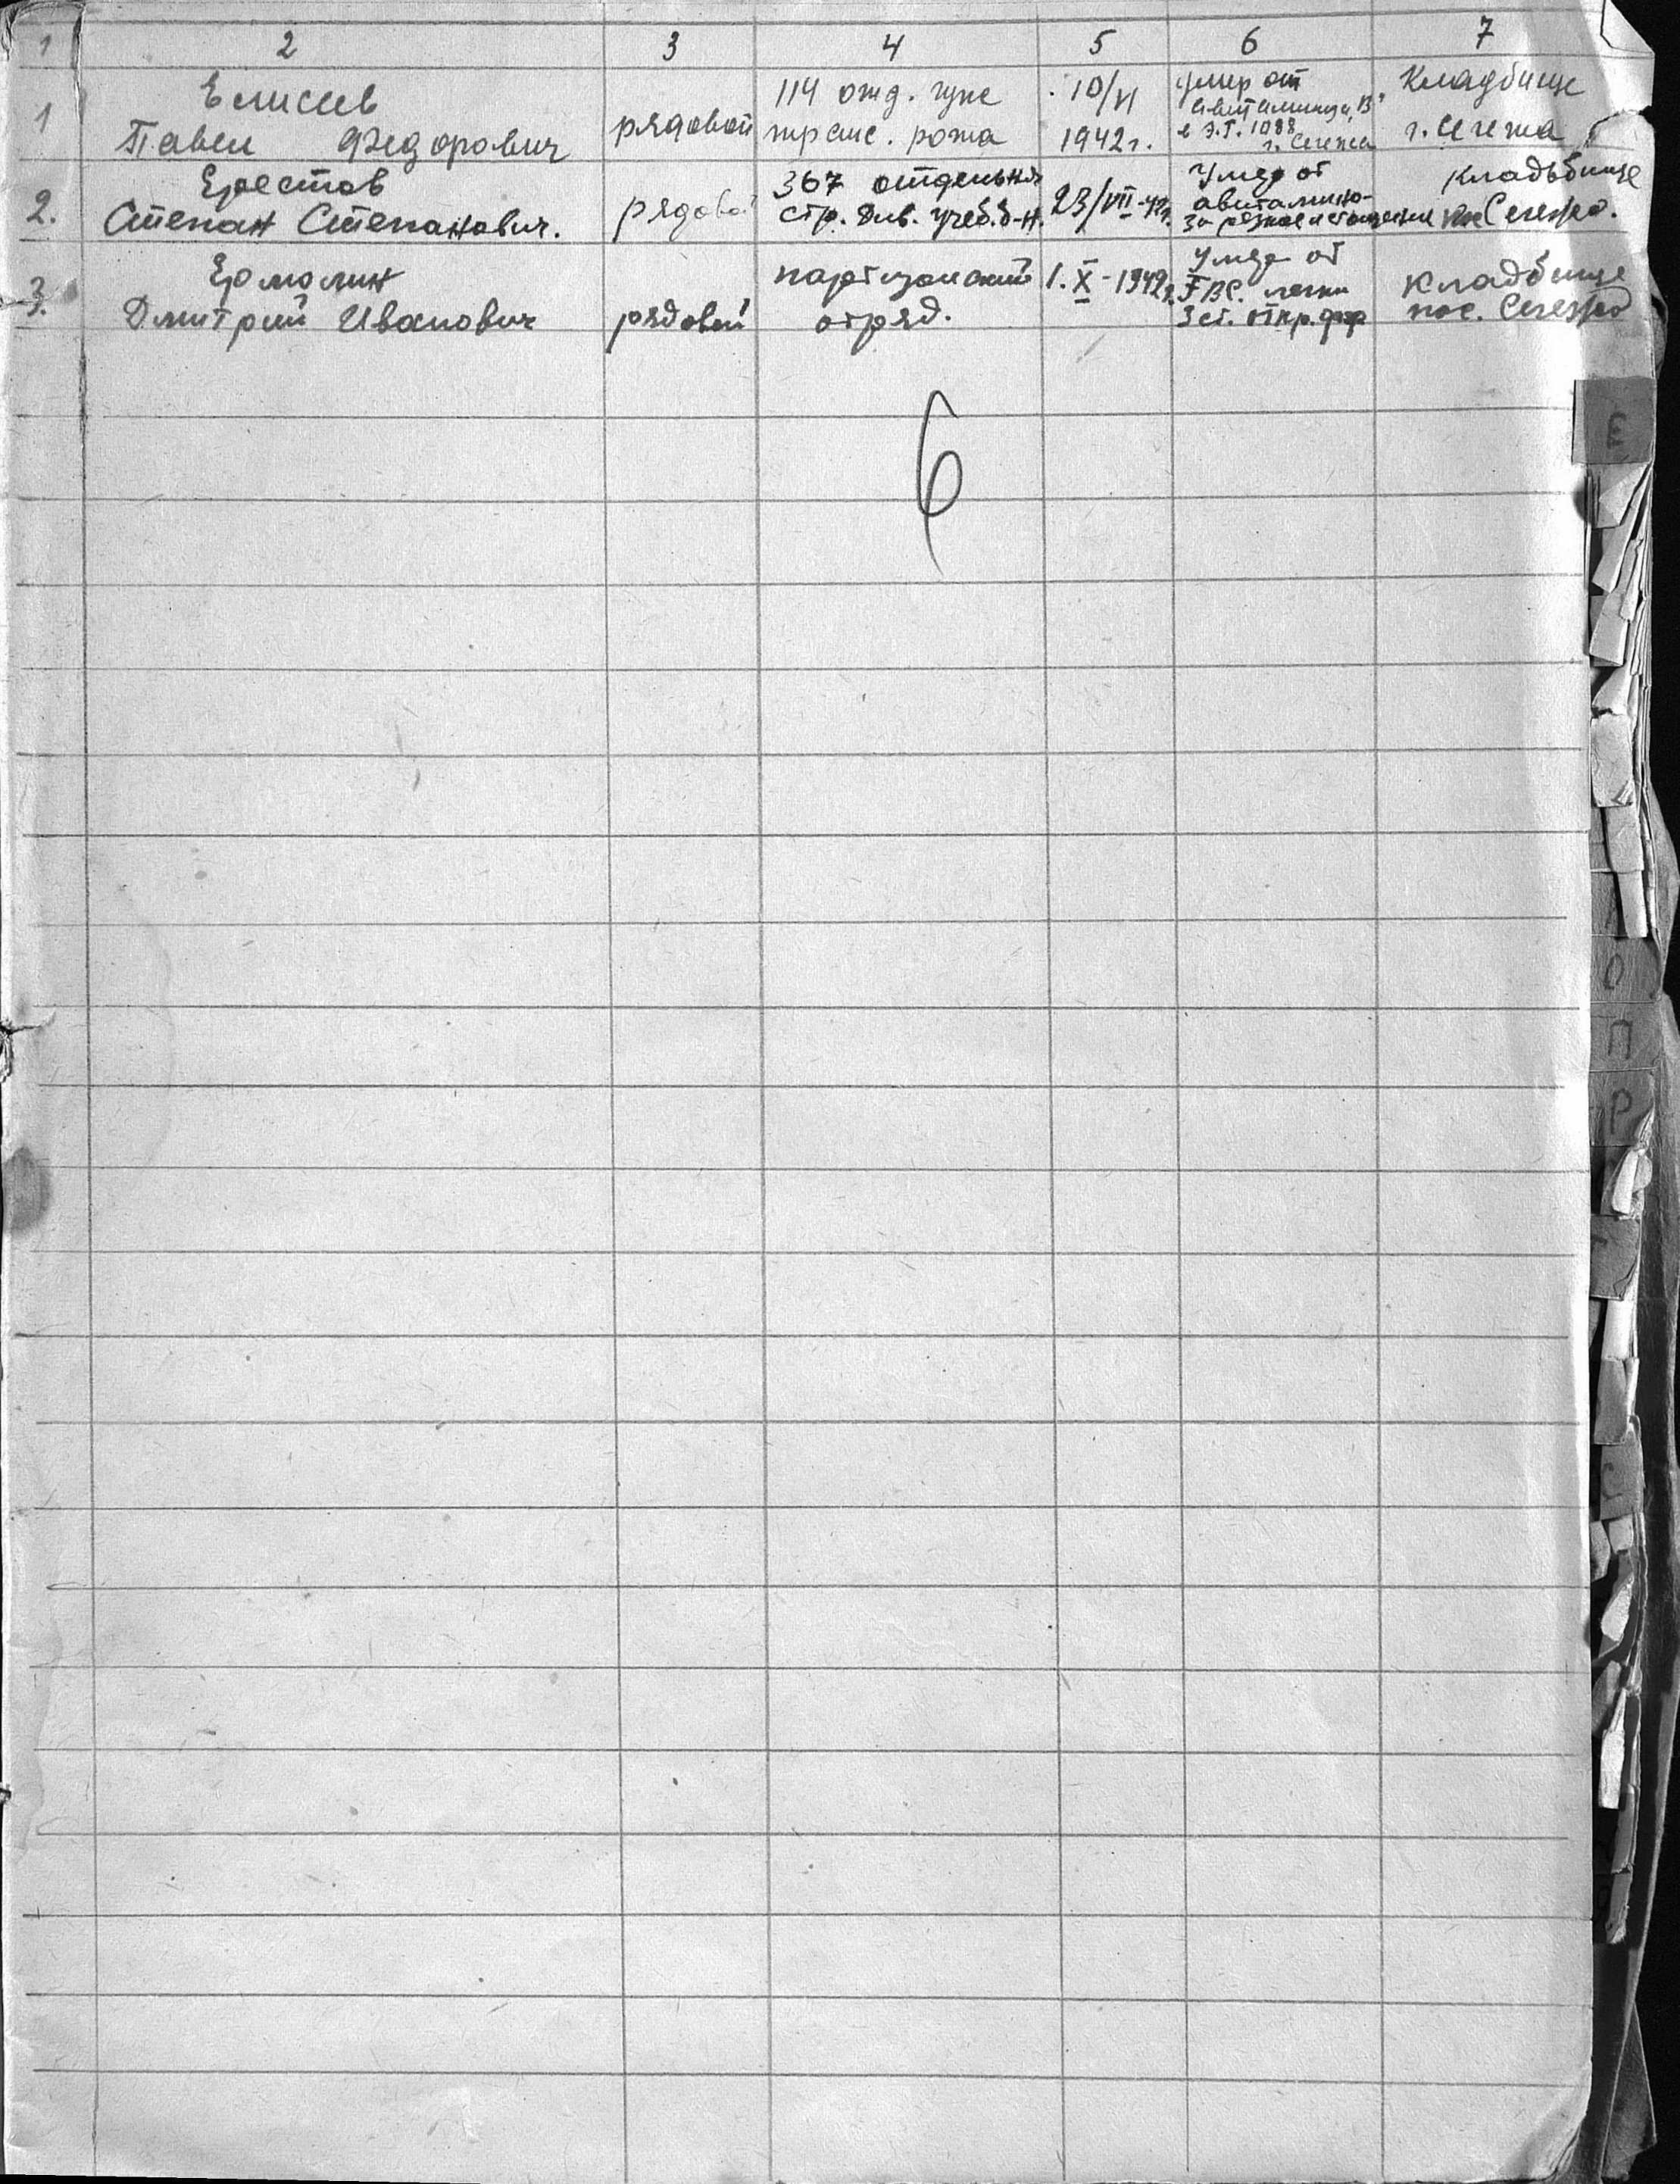 1 2 3 4 5 6 7
1 Елисеев Павел Федорович рядовой 114 отд. гуже транс. рота 10/VI 1942 г. умер от авитаминоза "В" в Э.Г. 1088 г. Сегежа Кладбище г. Сегежа
2. Ерестов Степан Степанович. рядовой 367 отдельная стр. див. учеб. б-н. 23/VII-42 г. Умер от авитамино- за резкое истощение Кладьбище пос Сегежа.
3. Ермолин Дмитрий Иванович рядовой партизанский отряд. 1.X-1942 г. Умер от ТВС. легких 3 ст. откр. фор Кладбище пос. Сегежа
6
Е
О
П
Р
С